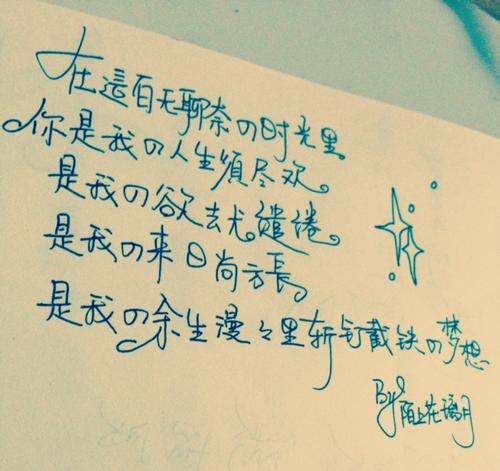 在這百无聊奈の时光里
你是我の人生須尽欢。
是我の欲去尤繾绻。
是我の来日尚方長。
是我の余生漫々里斩钉截铁の梦想
By 陌上花璃月